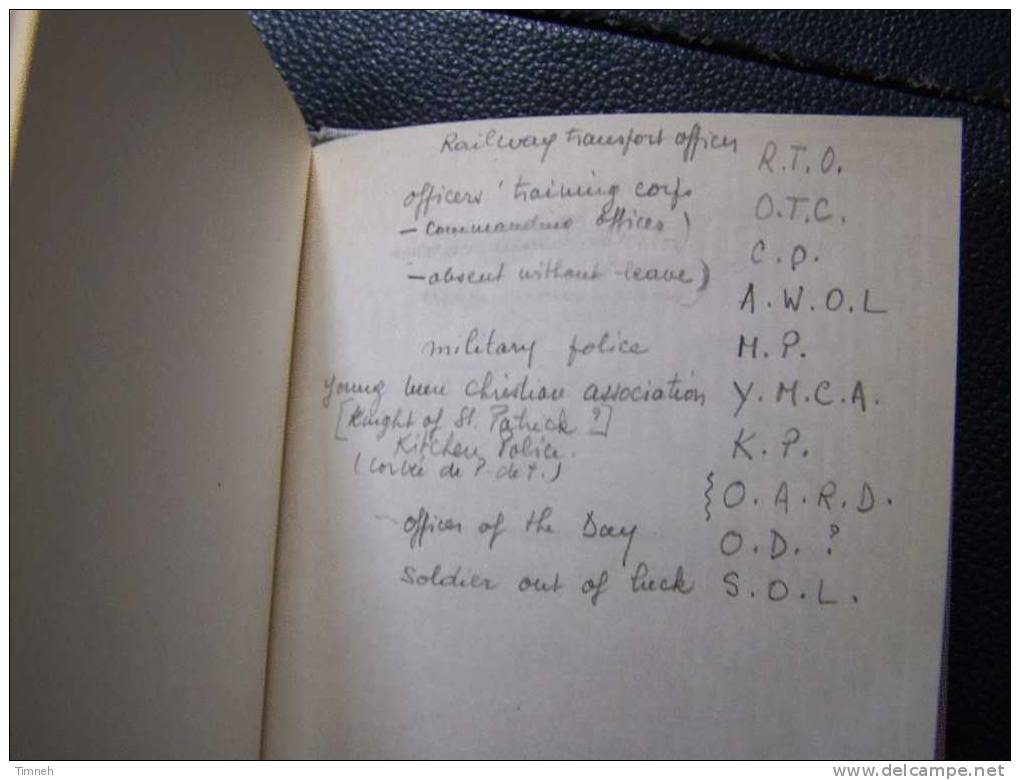 Railway transport officer R.T.O.
officers' training corps O.T.C.
- commanding officer) C.O.
- absent without leave) A.W.O.L
military police M.P.
young men christian association Y.M.C.A.
[Knight of St. Patrick ?]
Kitchen Police. K.P.
(corvée de P. de t.)
{O.A.R.D.
officer of the Day O.D. ?
Soldier out of luck S.O.L.
Timneh
www.delcampe.net